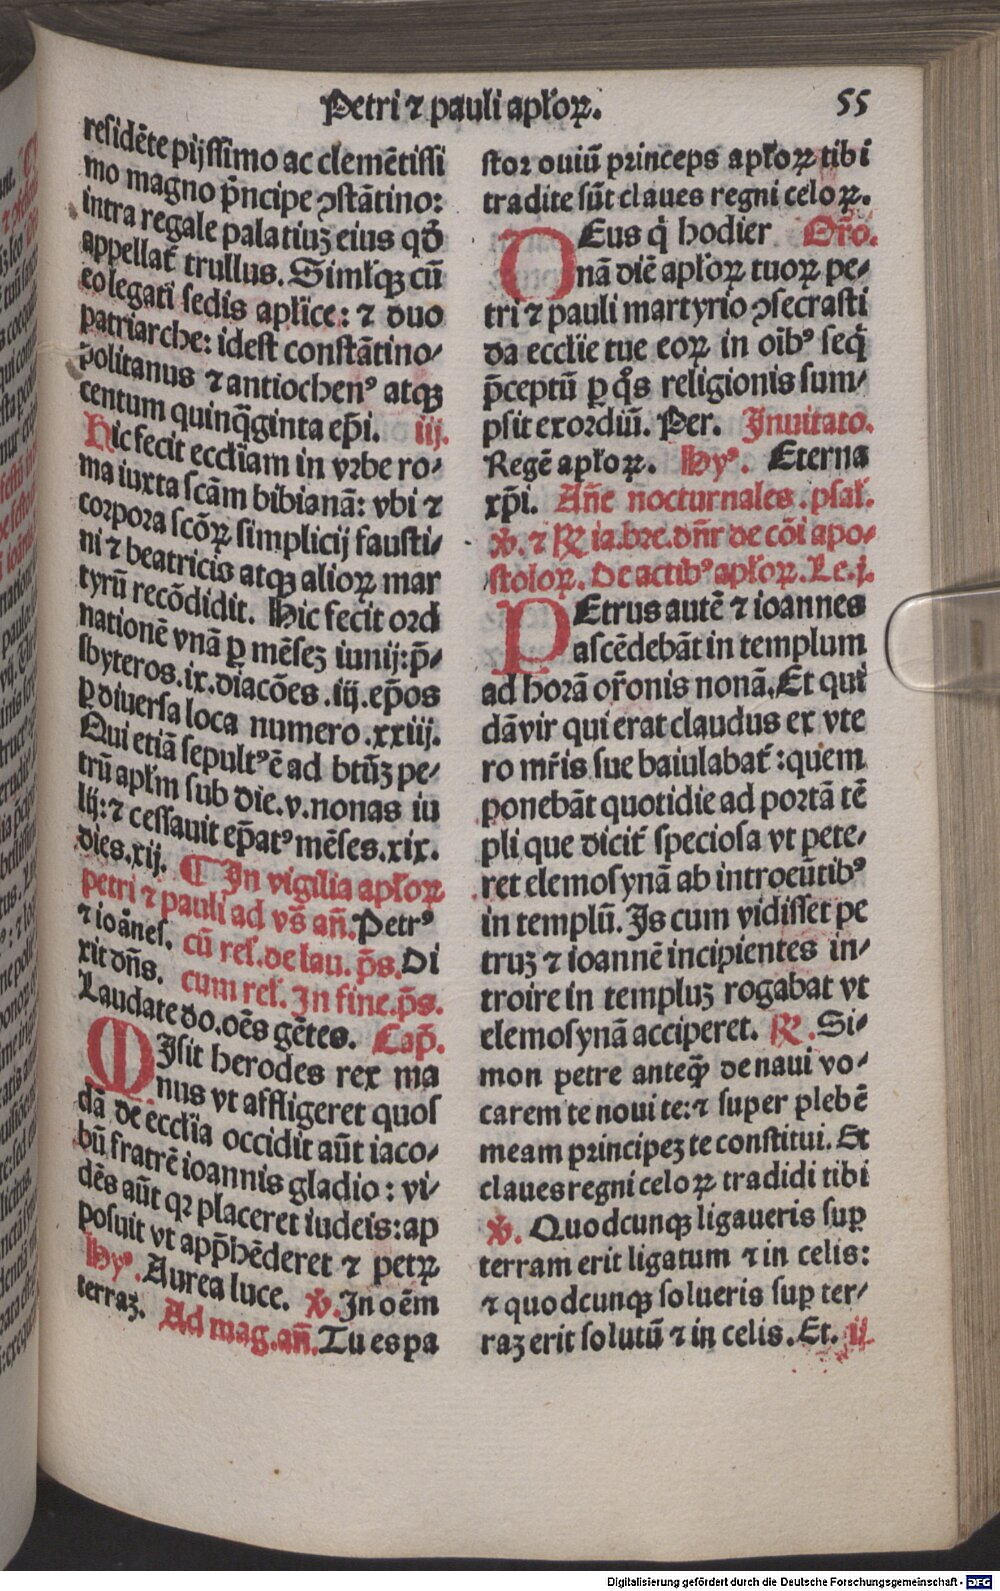 Petri ⁊ pauli apl'oꝝ. 55
residēte pijssimo ac clemētissi
mo magno p̄ncipe ꝯstātino:
intra regale palatiuꝫ eius qd̄
appellat᷑ trullus. Siml'qꝫ cū
eo legati sedis apl'ice: ⁊ duo
patriarche: idest constātino⸗
politanus ⁊ antiochenꝰ atqꝫ
centum quinq̄ginta ep̄i. iij.
Hic fecit eccl'iam in vrbe ro⸗
ma iuxta scām bibianā: vbi ⁊
corpora scōꝝ simplicij fausti⸗
ni ⁊ beatricis atqꝫ alioꝝ mar
tyrū recōdidit. Hic fecit ord
nationē vnā ꝑ mēseꝫ iunij:p̄⸗
sbyteros.ix.diacōes.iij.ep̄os
ꝑ diuersa loca numero.xxiij.
Qui etiā sepultꝰē ad btūꝫ pe⸗
trū apl'm sub die.v.nonas iu
lij:⁊ cessauit ep̄atꝰ mēses.xix.
dies.xij. ¶ In vigilia apl'oꝝ
petri ⁊ pauli ad vs̄ an̄. Petrꝰ
⁊ ioānes. cū rel'.de lau. ps̄. Di
xit dn̄s. cum rel'. In fine.ps̄.
Laudate do.oēs gētes. Cap̄.
MIsit herodes rex ma
nus vt affligeret quos
dā de eccl'ia occidit aūt iaco⸗
bū fratrē ioannis gladio: vi⸗
dēs aūt qꝛ placeret iudeis:ap
posuit vt app̄hēderet ⁊ petꝝ
Hyꝰ. Aurea luce. ℣. In oēm
terraꝫ. Ad mag.an̄. Tu es pa
stor ouiū princeps apl'oꝝ tibi
tradite sūt claues regni celoꝝ.
DEus q̇ hodier Or̄o.
nā diē apl'oꝝ tuoꝝ pe⸗
tri ⁊ pauli martyrio ꝯsecrasti
da eccl'ie tue eoꝝ in oībꝰ seq̇
p̄ceptū ꝑ q̊s religionis sum⸗
psit exordiū. Per. Inuitato.
Regē apl'oꝝ. Hyꝰ. Eterna
xp̄i. An̄e nocturnales. psal'.
℣. ⁊ ℟ ia.bre.dn̄r de cōi apo⸗
stoloꝝ. De actibꝰ apl'oꝝ. Le.j.
PEtrus autē ⁊ ioannes
ascēdebāt in templum
ad horā or̄onis nonā. Et qui
dāvir qui erat claudus ex vte
ro mr̄is sue baiulabat᷑: quem
ponebāt quotidie ad portā tē
pli que dicit᷑ speciosa vt pete⸗
ret elemosynā ab introeūtibꝰ
in templū. Is cum vidisset pe
truꝫ ⁊ ioannē incipientes in⸗
troire in templuꝫ rogabat vt
elemosynā acciperet. ℟. Si⸗
mon petre anteq̄ꝫ de naui vo⸗
carem te noui te:⁊ super plebē
meam principeꝫ te constitui. Et
claues regni celoꝝ tradidi tibi
℣. Quodcunqꝫ ligaueris suꝑ
terram erit ligatum ⁊ in celis:
⁊ quodcunqꝫ solueris suꝑ ter⸗
raꝫ erit solutū ⁊ in celis. Et. ij.
Digitalisierung gefördert durch die Deutsche Forschungsgemeinschaft - DFG